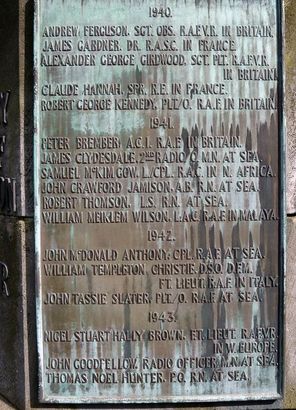 1940.
ANDREW FERGUSON. SGT. OBS. R.A.F.V.R. IN BRITAIN.
JAMES GARDNER. DR. R.A.S.C. IN FRANCE.
ALEXANDER GEORGE GIRDWOOD. SGT. PLT. R.A.F.V.R.
IN BRITAIN.
CLAUDE HANNAH. SPR. R.E. IN FRANCE.
ROBERT GEORGE KENNEDY. PLT/O. R.A.F. IN BRITAIN.
1941.
PETER BREMBER. A.C.1. R.A.F. IN BRITAIN.
JAMES CLYDESDALE. 2ND RADIO O. M.N. AT SEA.
SAMUEL MCKIM GOW. L/CPL. R.A.C. IN N. AFRICA.
JOHN CRAWFORD JAMISON. A.B. R.N. AT SEA.
ROBERT THOMSON. L.S. R.N. AT SEA.
WILLIAM MEIKLEM WILSON. R.A.F. IN MALAYA.
1942.
JOHN MCDONALD ANTHONY. CPL. R.A.F. AT SEA.
WILLIAM TEMPLETON CHRISTIE. D.S.O. D.F.M.
FT. LIEUT. R.A.F. IN ITALY.
JOHN TASSIE SLATER. PLT/O. R.A.F. AT SEA.
1943.
NIGEL STUART HALLY BROWN. FT. LIEUT. R.A.F.V.R.
IN W. EUROPE.
JOHN GOODFELLOW. RADIO OFFICER. M.N. AT SEA.
THOMAS NOEL HUNTER. P.O. R.N. AT SEA.